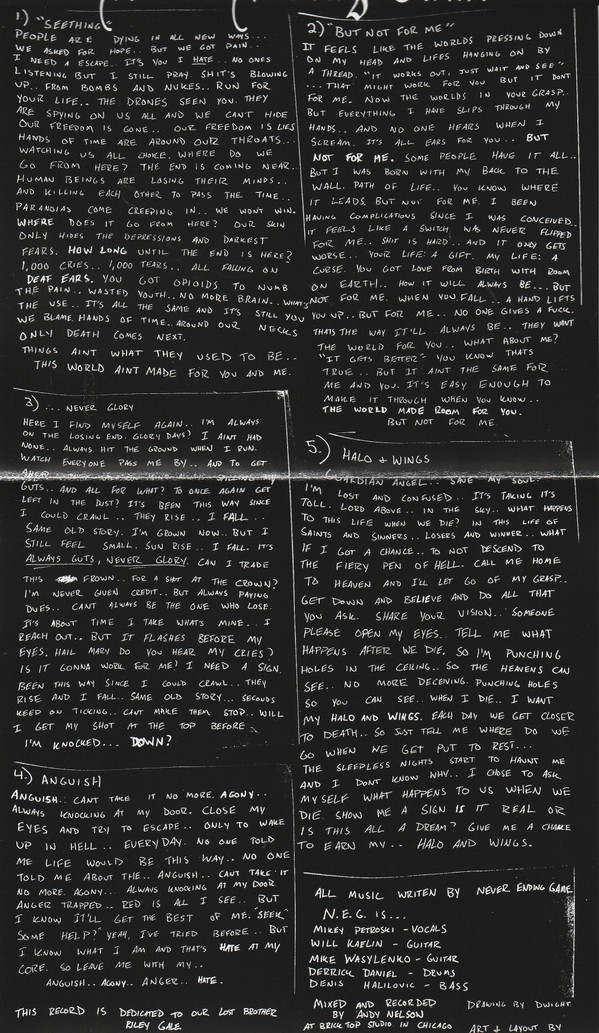 1.) "SEETHING"
PEOPLE ARE DYING IN ALL NEW WAYS...
WE ASKED FOR HOPE.. BUT WE GOT PAIN..
I NEED A ESCAPE.. IT'S YOU I HATE.. NO ONES
LISTENING BUT I STILL PRAY. SHIT'S BLOWING
UP.. FROM BOMBS AND NUKES.. RUN FOR
YOUR LIFE.. THE DRONES SEEN YOU. THEY
ARE SPYING ON US ALL AND WE CAN'T HIDE
OUR FREEDOM IS GONE.. OUR FREEDOM IS LIES
HANDS OF TIME ARE AROUND OUR THROATS...
WATCHING US ALL CHOKE. WHERE DO WE
GO FROM HERE? THE END IS COMING NEAR..
HUMAN BEINGS ARE LOSING THEIR MINDS..
AND KILLING EACH OTHER TO PASS THE TIME..
PARANOIAS COME CREEPING IN.. WE WONT WIN.
WHERE DOES IT GO FROM HERE? OUR SKIN
ONLY HIDES THE DEPRESSIONS AND DARKEST
FEARS. HOW LONG UNTIL THE END IS HERE?
1,000 CRIES.. 1,000 TEARS.. ALL FALLING ON
DEAF EARS. YOU GOT OPIOIDS TO NUMB
THE PAIN.. WASTED YOUTH.. NO MORE BRAIN.. WHATS
THE USE.. IT'S ALL THE SAME AND IT'S STILL YOU
WE BLAME. HANDS OF TIME. AROUND OUR NECKS
ONLY DEATH COMES NEXT.
THINGS AINT WHAT THEY USED TO BE..
THIS WORLD AINT MADE FOR YOU AND ME.
2) "BUT NOT FOR ME"
IT FEELS LIKE THE WORLDS PRESSING DOWN
ON MY HEAD AND LIFES HANGING ON BY
A THREAD. "IT WORKS OUT, JUST WAIT AND SEE"
...THAT MIGHT WORK FOR YOU BUT IT DONT
FOR ME. NOW THE WORLDS IN YOUR GRASP..
BUT EVERYTHING I HAVE SLIPS THROUGH MY
HANDS.. AND NO ONE HEARS WHEN I
SCREAM. IT'S ALL EARS FOR YOU.. BUT
NOT FOR ME. SOME PEOPLE HAVE IT ALL..
BUT I WAS BORN WITH MY BACK TO THE
WALL. PATH OF LIFE.. YOU KNOW WHERE
IT LEADS. BUT NOT FOR ME. I BEEN
HAVING COMPLICATIONS SINCE I WAS CONCEIVED..
IT FEELS LIKE A SWITCH WAS NEVER FLIPPED
FOR ME.. SHIT IS HARD.. AND IT ONLY GETS
WORSE.. YOUR LIFE: A GIFT. MY LIFE: A
CURSE. YOU GOT LOVE FROM BIRTH WITH ROOM
ON EARTH.. HOW IT WILL ALWAYS BE... BUT
NOT FOR ME. WHEN YOU FALL.. A HAND LIFTS
YOU UP.. BUT FOR ME.. NO ONE GIVES A FUCK.
THATS THE WAY IT'LL ALWAYS BE.. THEY WANT
THE WORLD FOR YOU.. WHAT ABOUT ME?
"IT GETS BETTER" YOU KNOW THATS
TRUE.. BUT IT AINT THE SAME FOR
ME AND YOU. IT'S EASY ENOUGH TO
MAKE IT THROUGH WHEN YOU KNOW..
THE WORLD MADE ROOM FOR YOU.
BUT NOT FOR ME.
3) ... NEVER GLORY
HERE I FIND MYSELF AGAIN.. I'M ALWAYS
ON THE LOSING END. GLORY DAYS? I AINT HAD
NONE.. ALWAYS HIT THE GROUND WHEN I RUN.
WATCH EVERYONE PASS ME BY.. AND TO GET
AHEAD SPILLING MY
GUTS.. AND ALL FOR WHAT? TO ONCE AGAIN GET
LEFT IN THE DUST? IT'S BEEN THIS WAY SINCE
I COULD CRAWL.. THEY RISE.. I FALL...
SAME OLD STORY. I'M GROWN NOW.. BUT I
STILL FEEL SMALL. SUN RISE.. I FALL. IT'S
ALWAYS GUTS, NEVER GLORY. CAN I TRADE
THIS FROWN.. FOR A SHOT AT THE CROWN?
I'M NEVER GIVEN CREDIT.. BUT ALWAYS PAYING
DUES.. CANT ALWAYS BE THE ONE WHO LOSE.
IT'S ABOUT TIME I TAKE WHAT'S MINE.. I
REACH OUT.. BUT IT FLASHES BEFORE MY
EYES. HAIL MARY DO YOU HEAR MY CRIES?
IS IT GONNA WORK FOR ME? I NEED A SIGN.
BEEN THIS WAY SINCE I COULD CRAWL.. THEY
RISE AND I FALL.. SAME OLD STORY... SECONDS
KEEP ON TICKING.. CANT MAKE THEM STOP.. WILL
I GET MY SHOT AT THE TOP BEFORE
I'M KNOCKED... DOWN?
4.) ANGUISH
ANGUISH.. CANT TAKE IT NO MORE. AGONY..
ALWAYS KNOCKING AT MY DOOR. CLOSE MY
EYES AND TRY TO ESCAPE.. ONLY TO WAKE
UP IN HELL.. EVERYDAY. NO ONE TOLD
ME LIFE WOULD BE THIS WAY.. NO ONE
TOLD ME ABOUT THE.. ANGUISH.. CANT TAKE IT
NO MORE. AGONY... ALWAYS KNOCKING AT MY DOOR
ANGER TRAPPED.. RED IS ALL I SEE.. BUT
I KNOW IT'LL GET THE BEST OF ME. "SEEK
SOME HELP?" YEAH, I'VE TRIED BEFORE.. BUT
I KNOW WHAT I AM AND THAT'S HATE AT MY
CORE. SO LEAVE ME WITH MY..
ANGUISH.. AGONY.. ANGER.. HATE.
THIS RECORD IS DEDICATED TO OUR LOST BROTHER
RILEY GALE
5.) HALO & WINGS
GUARDIAN ANGEL.. SAVE MY SOUL.
I'M LOST AND CONFUSED.. IT'S TAKING IT'S
TOLL. LORD ABOVE.. IN THE SKY.. WHAT HAPPENS
TO THIS LIFE WHEN WE DIE? IN THIS LIFE OF
SAINTS AND SINNERS.. LOSERS AND WINNER.. WHAT
IF I GOT A CHANCE.. TO NOT DESCEND TO
THE FIERY PEN OF HELL. CALL ME HOME
TO HEAVEN AND I'LL LET GO OF MY GRASP..
GET DOWN AND BELIEVE AND DO ALL THAT
YOU ASK. SHARE YOUR VISION.. SOMEONE
PLEASE OPEN MY EYES.. TELL ME WHAT
HAPPENS AFTER WE DIE. SO I'M PUNCHING
HOLES IN THE CEILING.. SO THE HEAVENS CAN
SEE.. NO MORE DECEIVING. PUNCHING HOLES
SO YOU CAN SEE.. WHEN I DIE.. I WANT
MY HALO AND WINGS. EACH DAY WE GET CLOSER
TO DEATH.. SO JUST TELL ME WHERE DO WE
GO WHEN WE GET PUT TO REST...
THE SLEEPLESS NIGHTS START TO HAUNT ME
AND I DONT KNOW WHY.. I CHOSE TO ASK
MYSELF WHAT HAPPENS TO US WHEN WE
DIE. SHOW ME A SIGN IS IT REAL OR
IS THIS ALL A DREAM? GIVE ME A CHANCE
TO EARN MY.. HALO AND WINGS.
ALL MUSIC WRITEN BY NEVER ENDING GAME
N.E.G. IS...
MIKEY PETROSKI - VOCALS
WILL KAELIN - GUITAR
MIKE WASYLENKO - GUITAR
DERRICK DANIEL - DRUMS
DENIS HALILOVIC - BASS
MIXED AND RECORDED
BY ANDY NELSON
AT BRICKTOP STUDIO IN CHICAGO
DRAWING BY DWIGHT
ART & LAYOUT BY